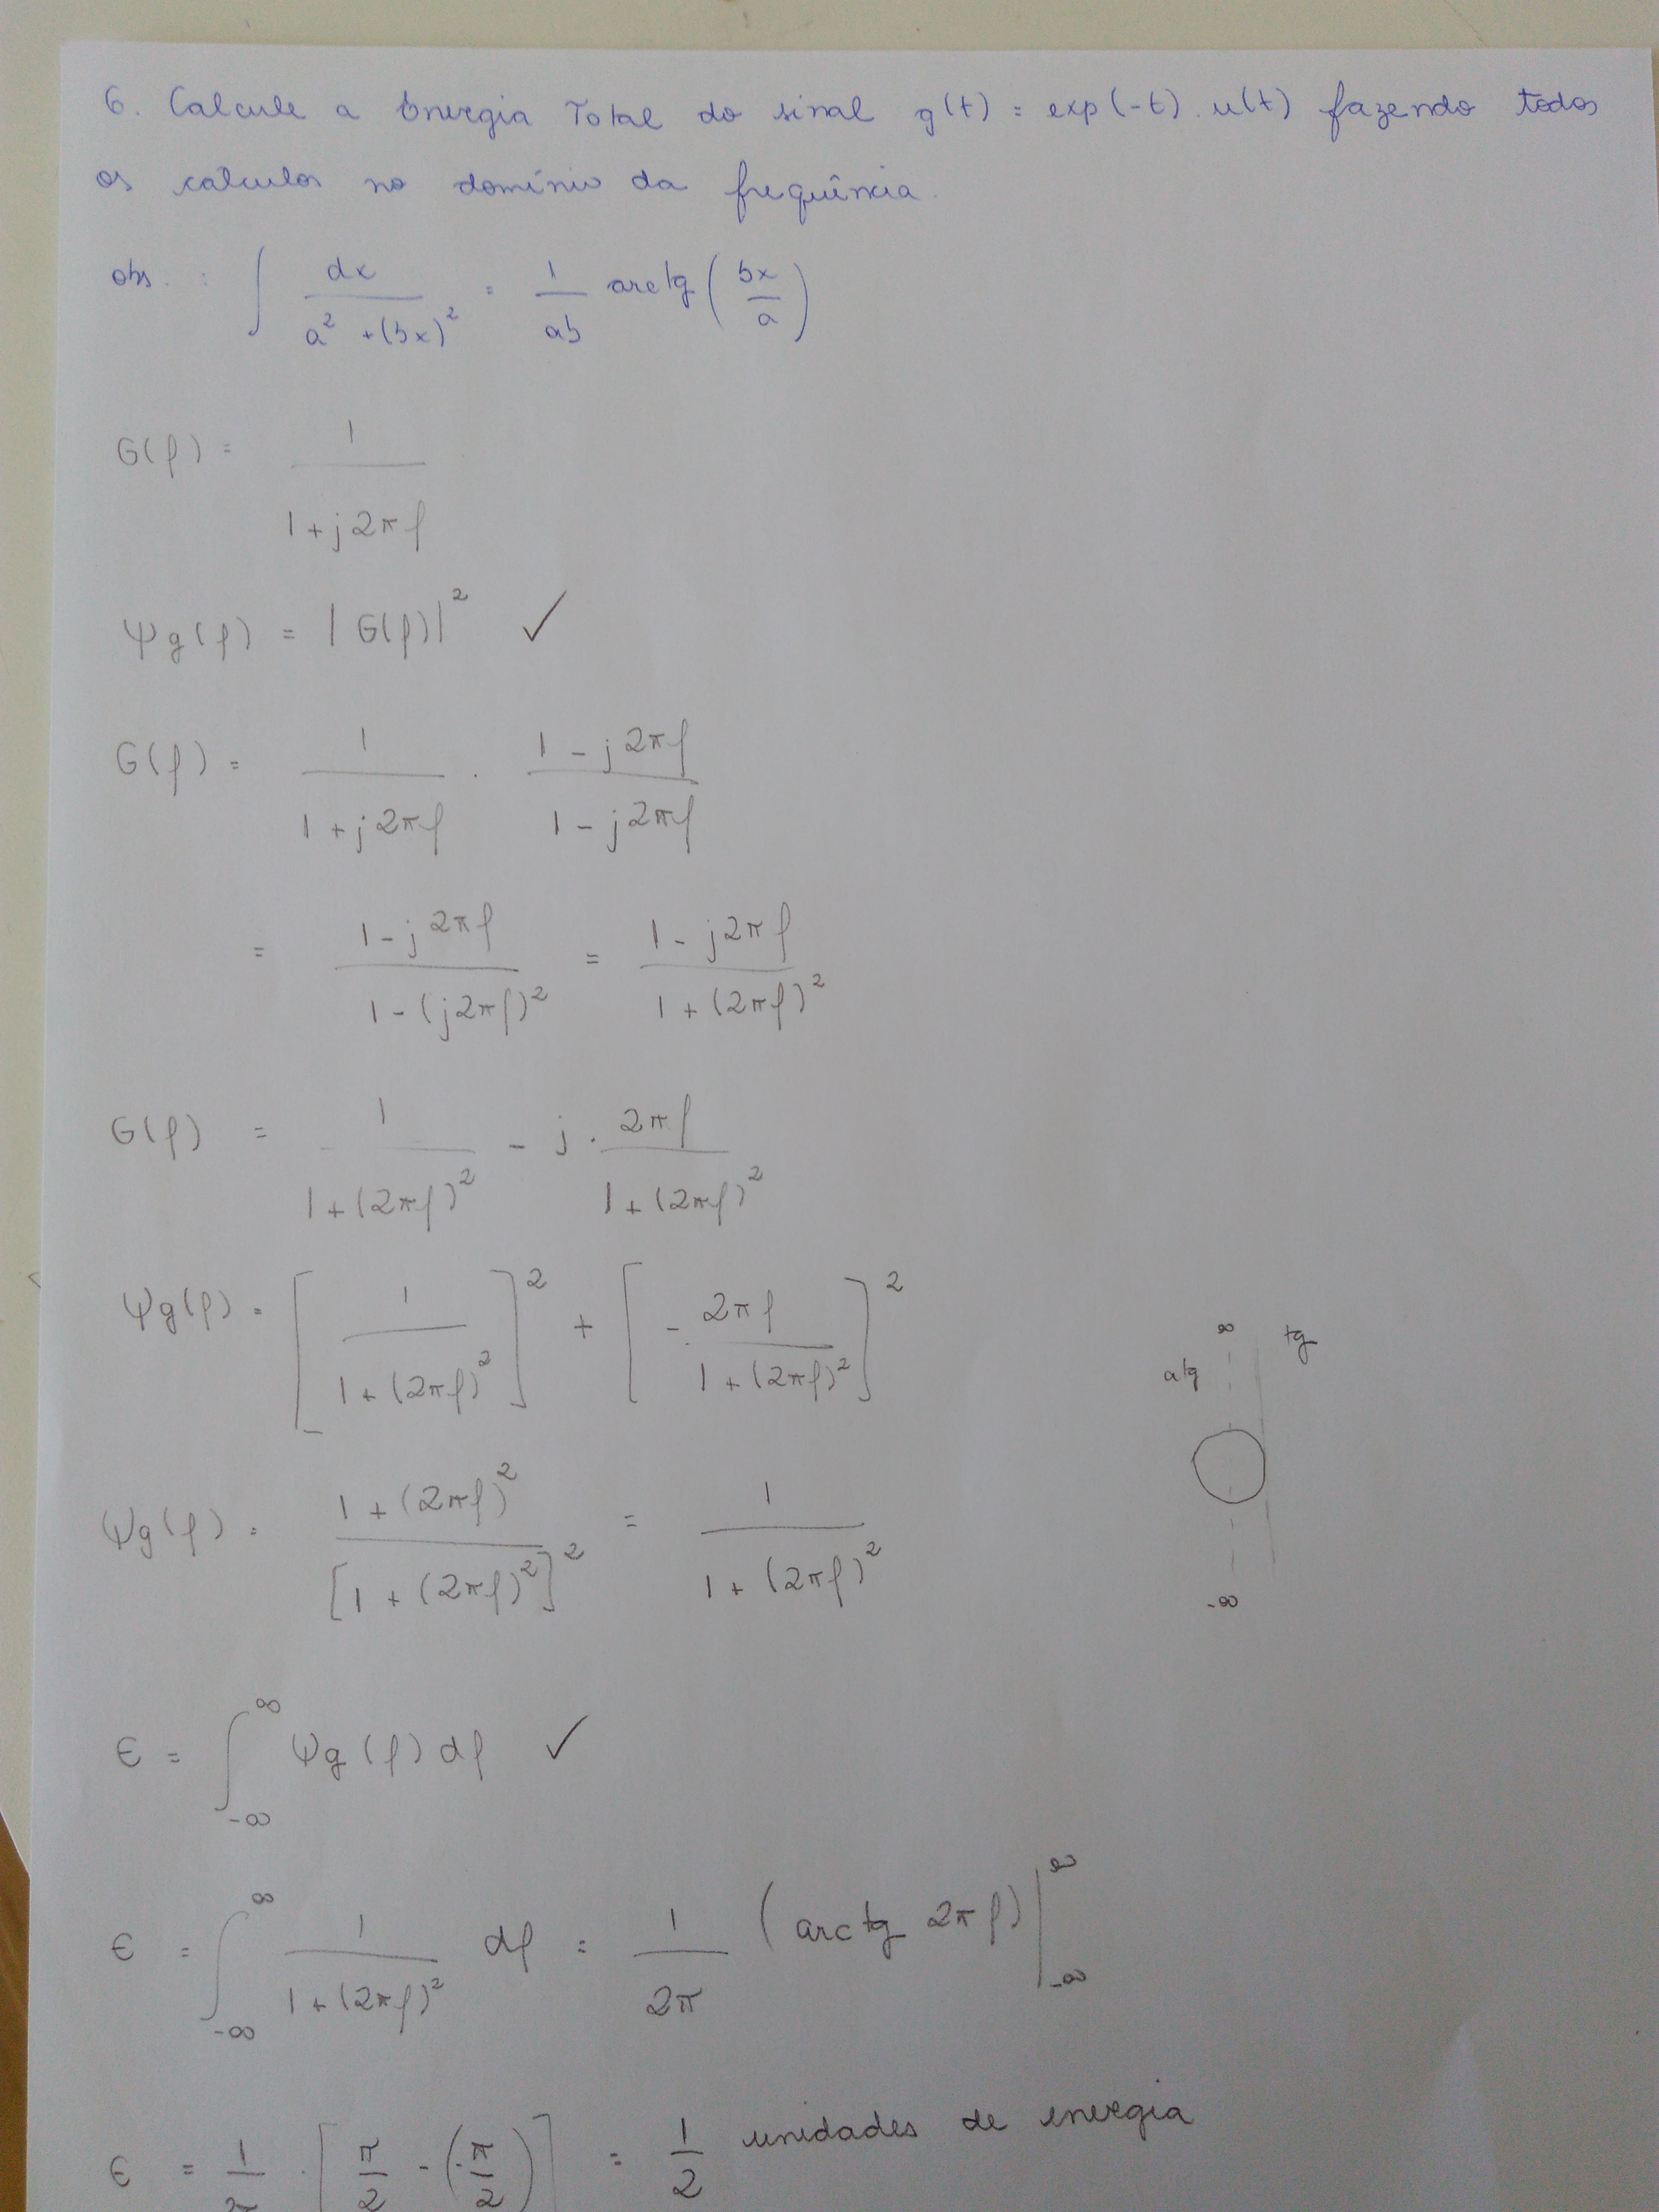 6. Calcule a Energia Total do sinal g(t) = exp(-t) . u(t) fazendo todos
os calculos no domínio da frequência.
obs. : ∫ dx / (a² + (bx)²) = 1/(ab) arctg (bx/a)
G(f) = 1 / (1 + j2πf)
Ψg(f) = |G(f)|² ✓
G(f) = 1 / (1 + j2πf) . (1 - j2πf) / (1 - j2πf)
= (1 - j2πf) / (1 - (j2πf)²) = (1 - j2πf) / (1 + (2πf)²)
G(f) = 1 / (1 + (2πf)²) - j . 2πf / (1 + (2πf)²)
Ψg(f) = [1 / (1 + (2πf)²)]² + [- 2πf / (1 + (2πf)²)]²
∞ tg
atg
-∞
Ψg(f) = (1 + (2πf)²) / [1 + (2πf)²]² = 1 / (1 + (2πf)²)
ϵ = ∫_{-∞}^{∞} Ψg(f) df ✓
ϵ = ∫_{-∞}^{∞} 1 / (1 + (2πf)²) df = 1/(2π) (arctg 2πf) |_{-∞}^{∞}
ϵ = 1/2π . [π/2 - (-π/2)] = 1/2 unidades de energia